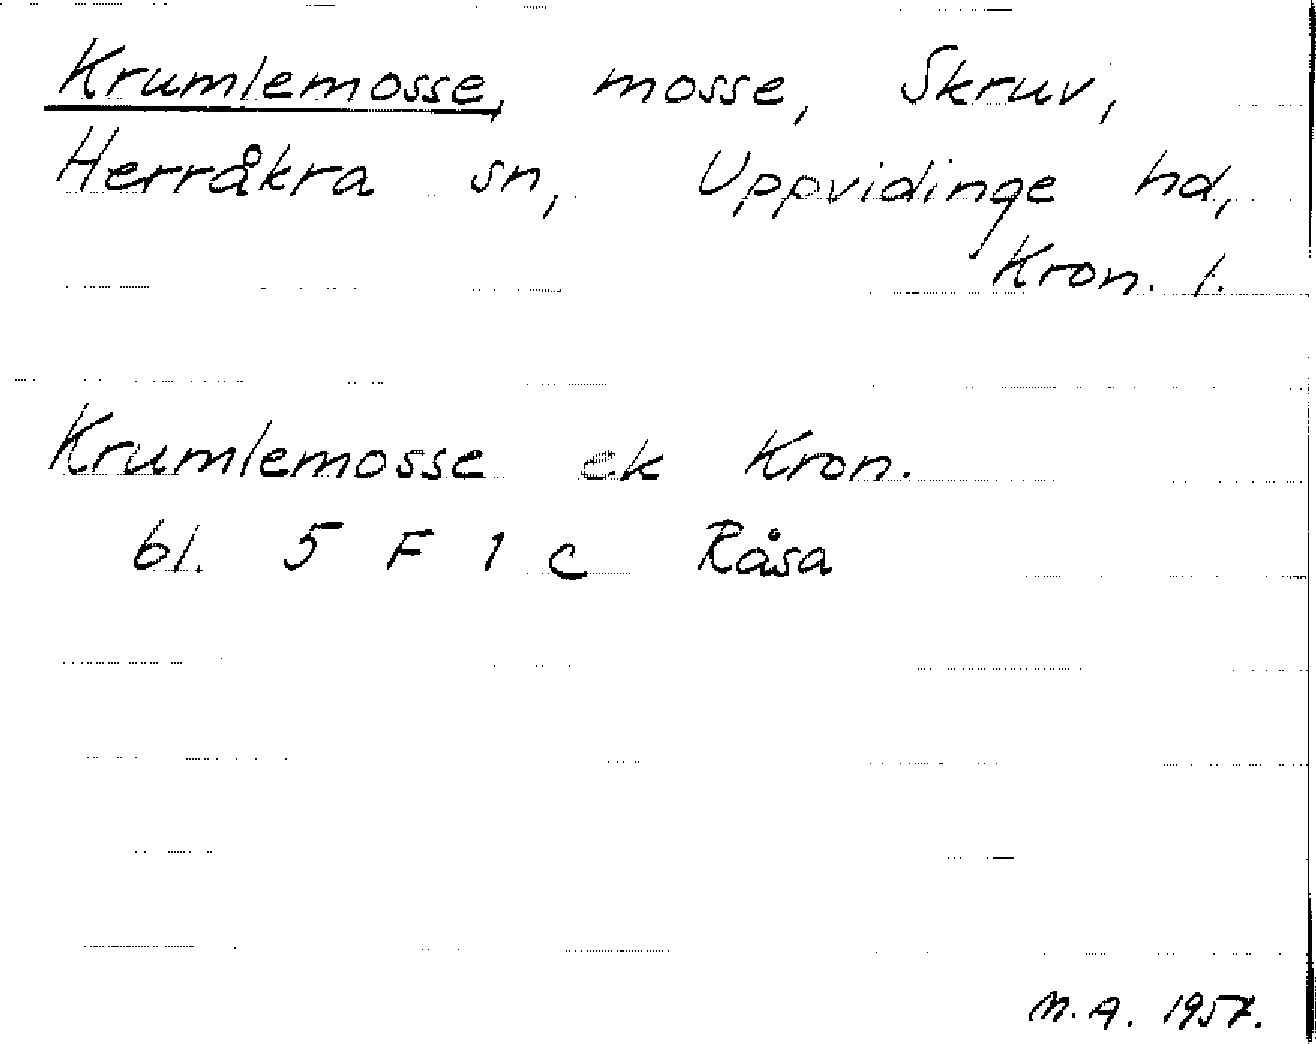 Krumlemosse, mosse, Skruv,
Herråkra sn, Uppvidinge hd,
Kron. l.
Krumlemosse ek Kron.
bl. 5 F 1 c Råsa
M. A. 1957.